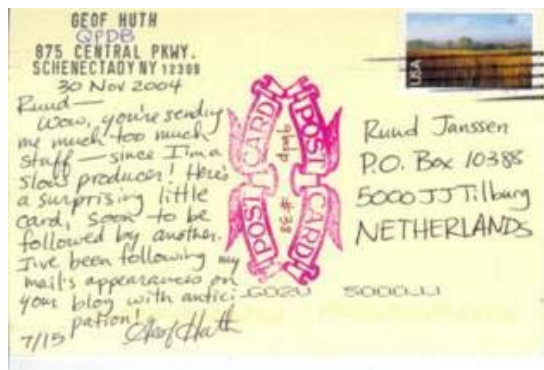 GEOF HUTH
QPDB
875 CENTRAL PKWY.
SCHENECTADY NY 12309
30 Nov 2004
Ruud—
Wow, you're sending
me much too much
stuff — since I'm a
slow producer! Here's
a surprising little
card, soon to be
followed by another.
I've been following my
mail's appearances on
your blog with antici-
pation!
7/15 Geof Huth
POST CARD
POST CARD
qbdp
#38
USA
Ruud Janssen
P.O. Box 10388
5000 JJ Tilburg
NETHERLANDS
5000JJ